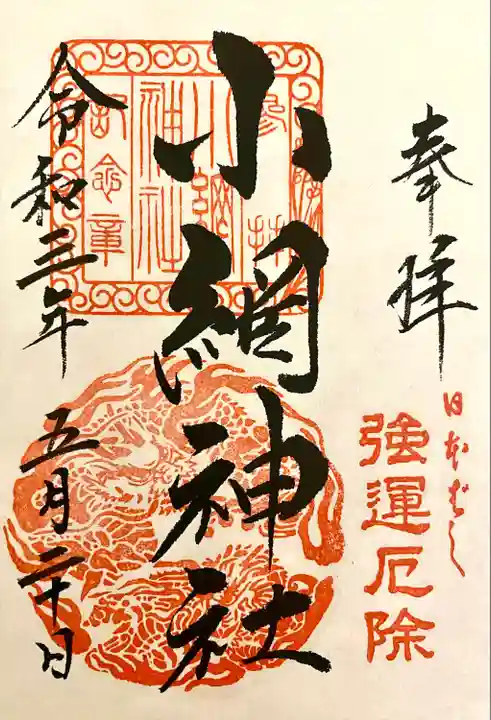 奉拝
日本ばし
強運厄除
小網神社
小網
神社
参拝
記念章
令和三年
五月二十日